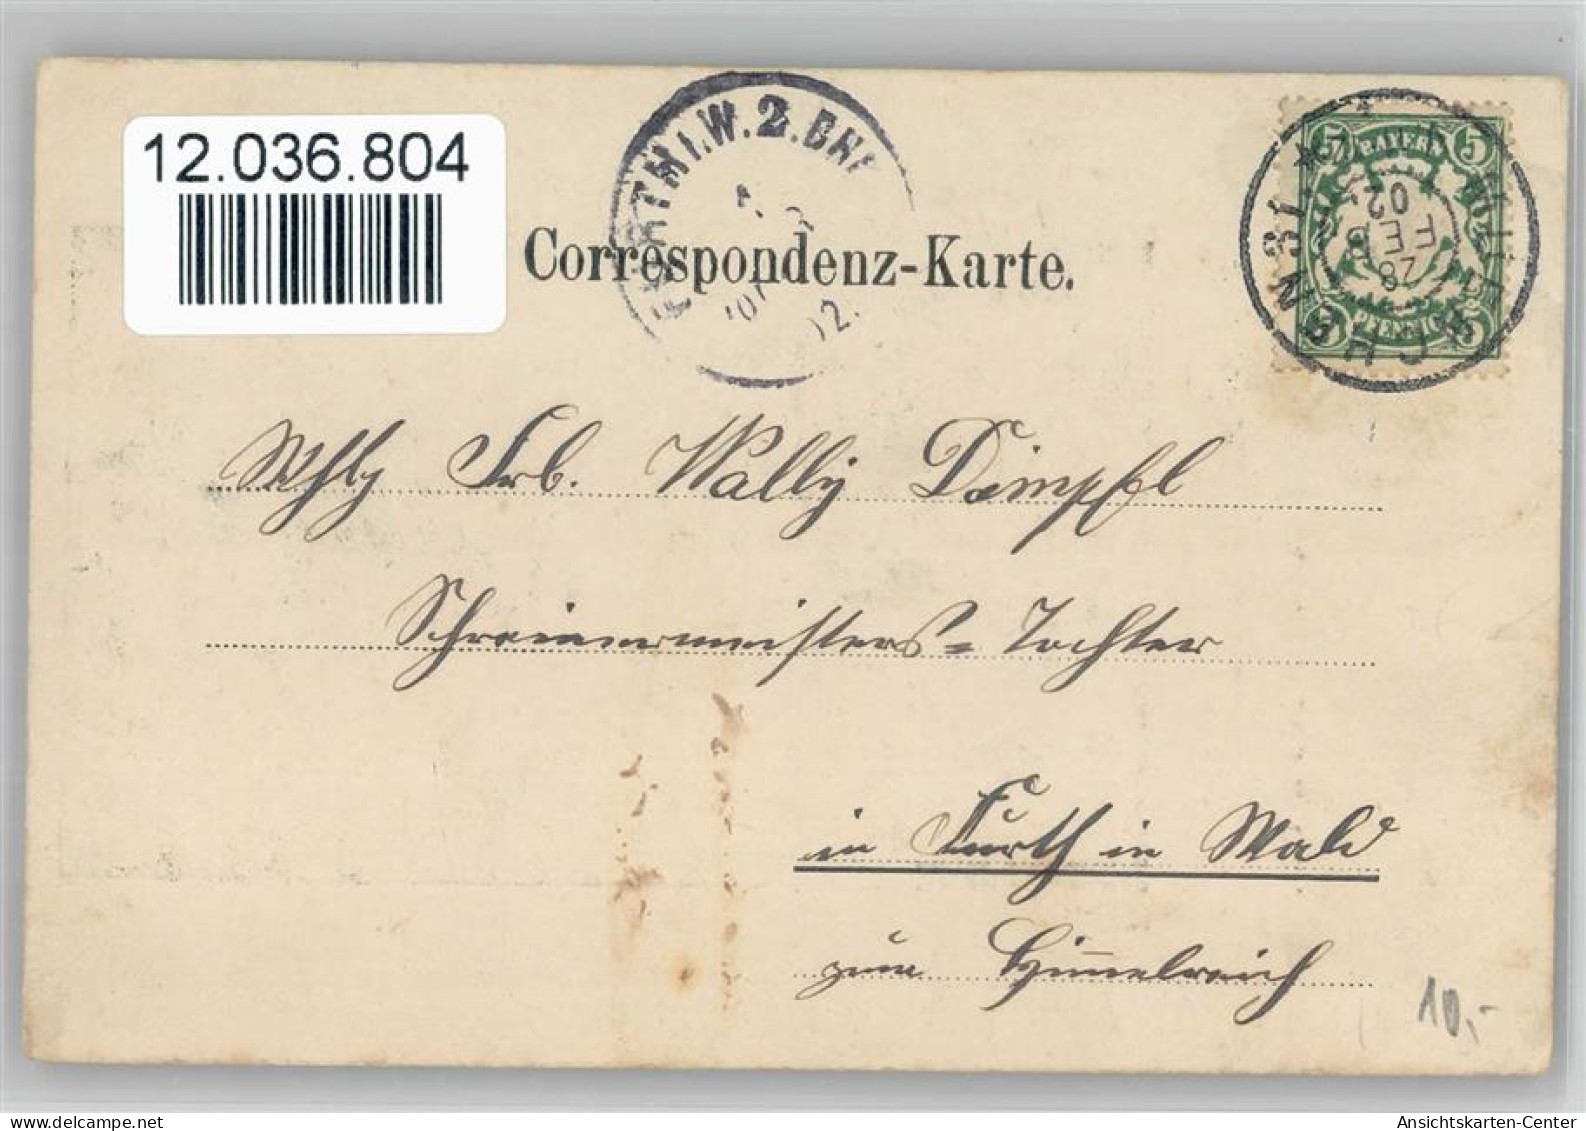 12.036.804
FURTH I.W. 2. BHF
02.
Correspondenz-Karte.
5 BAYERN 5
5 PFENNIG 5
MUENCHEN 31.
28
FEB
02
Wohlg Frl. Wally Dimpfl
Schreinermeisters=Tochter
in Furth in Wald
zum Himmelreich
10,-
delcampe.net
Ansichtskarten-Center